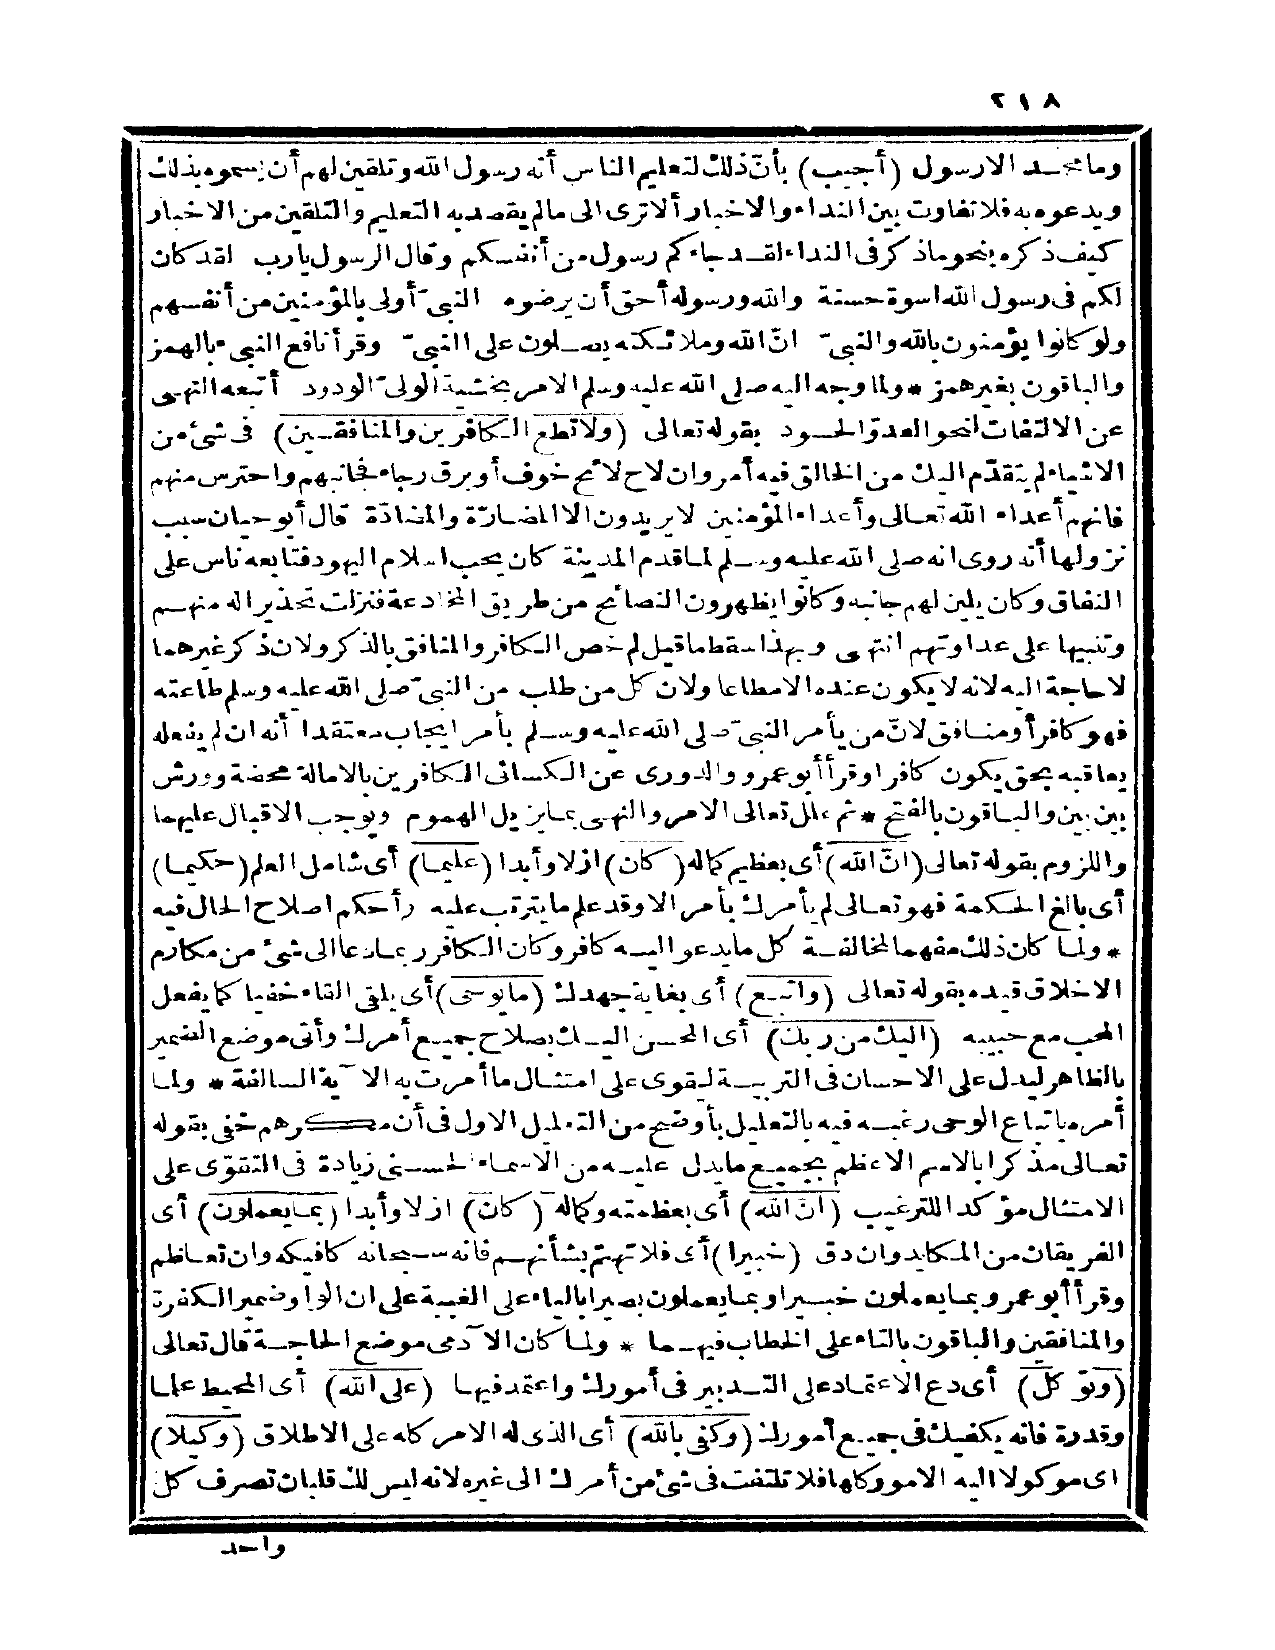 ٢١٨
وما محمد الا رسول (أجيب) بأنّ ذلك لتعليم الناس أنه رسول الله وتلقين لهم أن يسموه بذلك
ويدعوه به فلا تفاوت بين النداء والاخبار ألا ترى الى ما لم يقصد به التعليم والتلقين من الاخبار
كيف ذكره بنحو ما ذكر فى النداء لقد جاءكم رسول من أنفسكم وقال الرسول يا رب لقد كان
لكم فى رسول الله اسوة حسنة والله ورسوله أحق أن يرضوه النبىّ أولى بالمؤمنين من أنفسهم
ولو كانوا يؤمنون بالله والنبىّ انّ الله وملائكته يصلون على النبىّ وقرأ نافع النبىء بالهمز
والباقون بغير همز * ولما وجه اليه صلى الله عليه وسلم الامر بخشية الولىّ الودود أتبعه النهى
عن الالتفات نحو العدوّ الحسود بقوله تعالى (ولا تطع الكافرين والمنافقين) فى شئ من
الاشياء لم يتقدّم اليك من الخالق فيه أمر وان لاح لائح خوف أو برق رجاء فجانبهم واحترس منهم
فانهم أعداء الله تعالى وأعداء المؤمنين لا يريدون الا المضارّة والمضادّة قال أبو حيان سبب
نزولها أنه روى انه صلى الله عليه وسلم لما قدم المدينة كان يحب اسلام اليهود فتابعه ناس على
النفاق وكان يلين لهم جانبه وكانوا يظهرون النصائح من طريق المخادعة فنزلت تحذيرا له منهم
وتنبيها على عداوتهم انتهى وبهذا سقط ما قيل لم خص الكافر والمنافق بالذكر ولان ذكر غيرهما
لا حاجة اليه لانه لا يكون عنده الا مطاعا ولان كل من طلب من النبىّ صلى الله عليه وسلم طاعته
فهو كافر أو منافق لانّ من يأمر النبىّ صلى الله عليه وسلم بأمر ايجاب معتقدا أنه ان لم يفعله
يعاقبه بحق يكون كافرا وقرأ أبو عمرو والدورى عن الكسائى الكافرين بالامالة محضة وورش
بين بين والباقون بالفتح * ثم علل تعالى الامر والنهى بما يزيل الهموم ويوجب الاقبال عليهما
واللزوم بقوله تعالى (انّ الله) أى بعظيم كماله (كان) ازلا وأبدا (عليما) أى شامل العلم (حكيما)
أى بالغ الحكمة فهو تعالى لم يأمرك بأمر الا وقد علم ما يترتب عليه وأحكم اصلاح الحال فيه
* ولما كان ذلك مفهما لمخالفة كل ما يدعو اليه كافر وكان الكافر ربما دعا الى شئ من مكارم
الاخلاق قيده بقوله تعالى (واتبع) أى بغاية جهدك (ما يوحى) أى يلقى القاء خفيا كما يفعل
المحب مع حبيبه (اليك من ربك) أى المحسن اليك بصلاح جميع أمرك وأتى موضع الضمير
بالظاهر ليدل على الاحسان فى التربية ليقوى على امتثال ما أمرت به الآية السالفة * ولما
أمره باتباع الوحى رغبه فيه بالتعليل بأوضح من التعليل الاول فى أن مكرهم خفى بقوله
تعالى مذكرا بالاسم الاعظم بجميع ما يدل عليه من الاسماء الحسنى زيادة فى التقوى على
الامتثال مؤكدا للترغيب (انّ الله) أى بعظمته وكماله (كان) ازلا وأبدا (بما يعملون) أى
الفريقان من المكايد وان دق (خبيرا) أى فلا تهتمّ بشأنهم فانه سبحانه كافيكه وان تعاظم
وقرأ أبو عمرو بما يعملون خبيرا وبما يعملون بصيرا بالياء على الغيبة على ان الواو ضمير الكفرة
والمنافقين والباقون بالتاء على الخطاب فيهما * ولما كان الآدمى موضع الحاجة قال تعالى
(وتوكل) أى دع الاعتماد على التدبير فى أمورك واعتمد فيها (على الله) أى المحيط علما
وقدرة فانه يكفيك فى جميع أمورك (وكفى بالله) أى الذى له الامر كله على الاطلاق (وكيلا)
اى موكولا اليه الامور كلها فلا تلتفت فى شئ من أمرك الى غيره لانه ليس لك قلبان تصرف كل
واحد